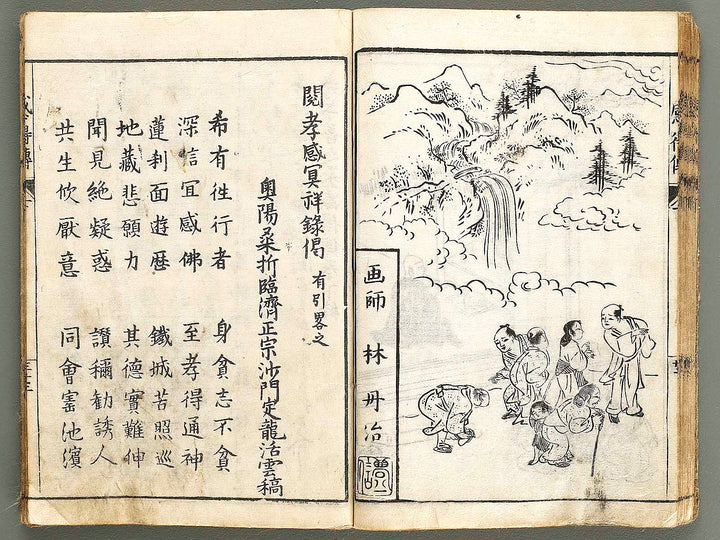 画師 林 丹冶
閲孝感冥祥錄偈 有引畧之
奥陽桑折臨濟正宗沙門定龍活雲稿
希有徃行者 身貧志不貧
深信宜感佛 至孝得通神
蓮刹面遊歴 鐵城苦照巡
地藏悲願力 其德實難伸
聞見絶疑惑 讃稱勸誘人
共生忻厭意 同會寳池濱